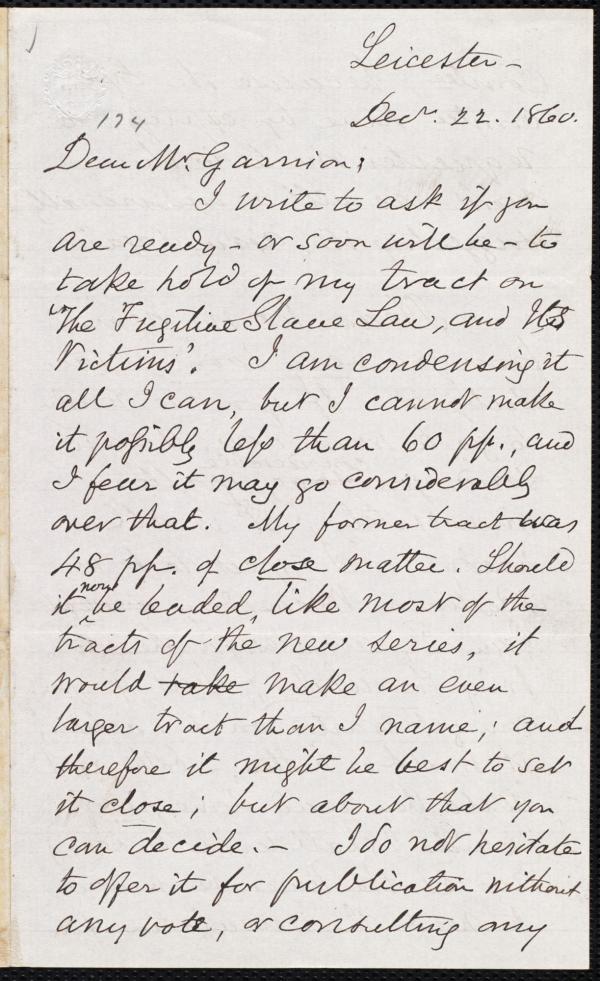 Leicester -
174
Decr. 22. 1860.
Dear Mr. Garrison;
I write to ask if you
are ready - or soon will be - to
take hold of my tract on
"The Fugitive Slave Law, and Its
Victims'. I am condensing it
all I can, but I cannot make
it possibly less than 60 pp., and
I fear it may go considerably
over that. My former tract was
48 pp. of close matter. Should
it now be leaded, like most of the
tracts of the new series, it
would take make an even
larger tract than I name; and
therefore it might be best to set
it close; but about that you
can decide. - I do not hesitate
to offer it for publication without
any vote, or consulting any